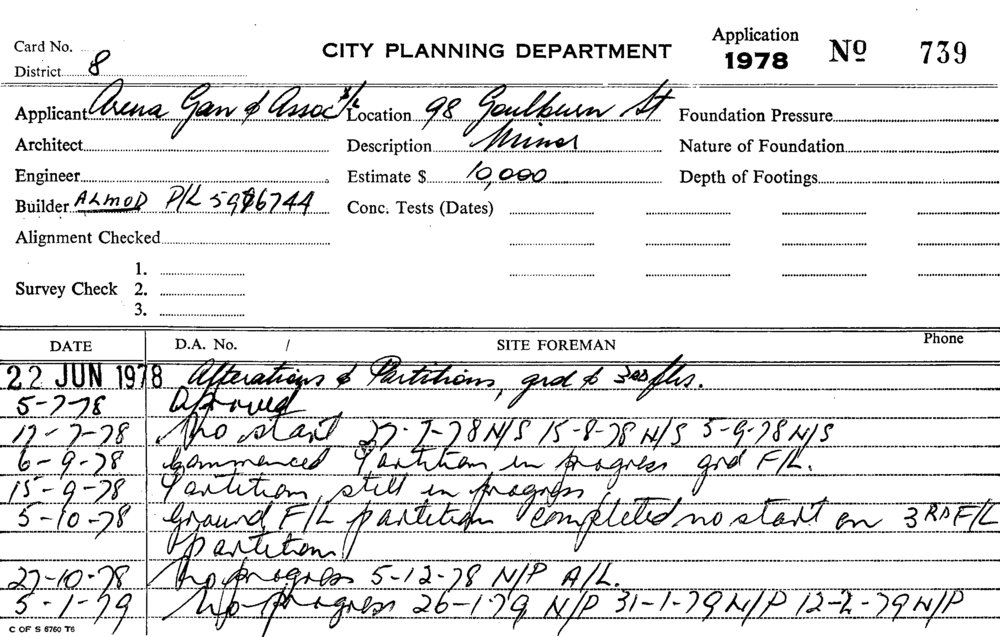 Card No.
District 8
CITY PLANNING DEPARTMENT
Application
1978
No 739
Applicant Arena Gan & Assoc's P/L Location 98 Goulburn St Foundation Pressure
Architect Description Minor Nature of Foundation
Engineer Estimate $ 10,000 Depth of Footings
Builder ALMOD P/L 5996744 Conc. Tests (Dates)
Alignment Checked
1.
Survey Check 2.
3.
DATE D.A. No. / SITE FOREMAN Phone
22 JUN 1978 Alterations & Partitions, grd & 3RD flrs.
5-7-78 Approved
17-7-78 No start 27-7-78 N/S 15-8-78 N/S 5-9-78 N/S
6-9-78 Commenced Partition in progress grd F/L.
15-9-78 Partition still in progress
5-10-78 Ground F/L partition completed no start on 3RD F/L
partition
27-10-78 No progress 5-12-78 N/P A/L.
5-1-79 No progress 26-1-79 N/P 31-1-79 N/P 12-2-79 N/P
C OF S 6760 T6